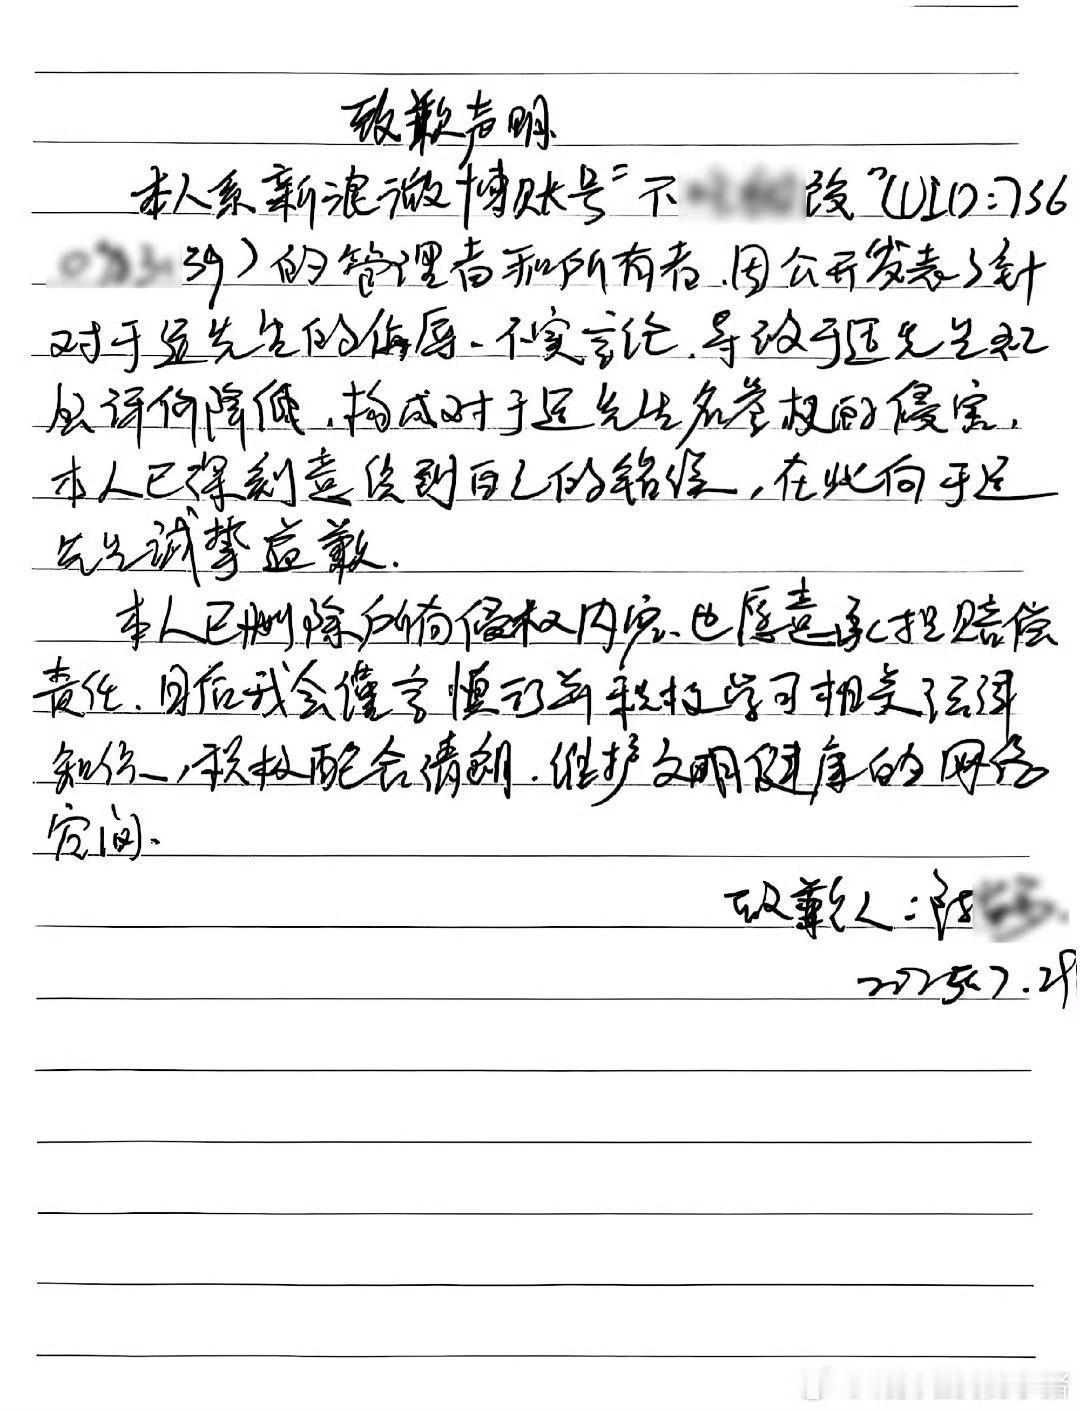 致歉声明
本人系新浪微博账号"不改"(UID:756
39)的管理者和所有者.因公开发表了针
对于适先生的侮辱、不实言论.导致于适先生社
会评价降低,构成对于适先生名誉权的侵害,
本人已深刻意识到自己的错误,在此向于适
先生诚挚道歉.
本人已删除所有侵权内容、也愿意承担赔偿
责任.日后我会谨言慎行并积极学习相关法律
知识,积极配合清朗.维护文明健康的网络
空间.
致歉人:陈
2025.7.29